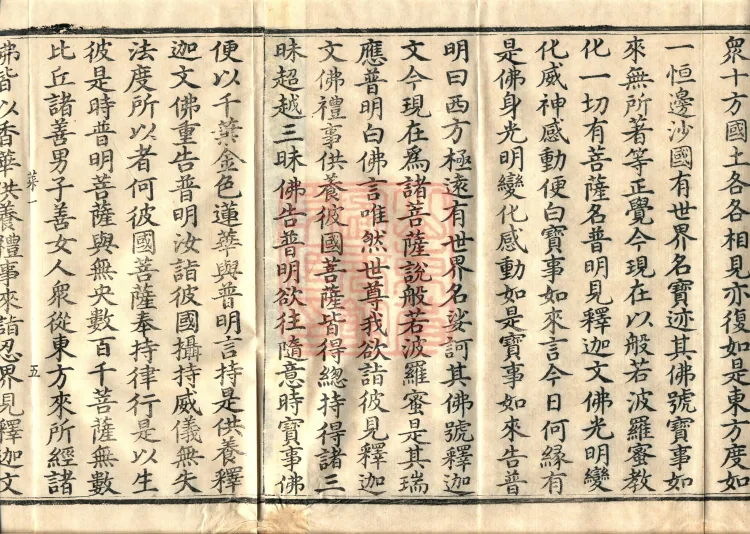 眾十方國土各各相見亦復如是東方度如
一恒邊沙國有世界名寶迹其佛號寶事如
來無所著等正覺今現在以般若波羅蜜教
化一切有菩薩名普明見釋迦文佛光明變
化威神感動便白寶事如來言今日何緣有
是佛身光明變化感動如是寶事如來告普
明曰西方極遠有世界名娑訶其佛號釋迦
文今現在為諸菩薩說般若波羅蜜是其瑞
應普明白佛言唯然世尊我欲詣彼見釋迦
文佛禮事供養彼國菩薩皆得緫持得諸三
昧超越三昧佛告普明欲往隨意時寶事佛
便以千葉金色蓮華與普明言持是供養釋
迦文佛重告普明汝詣彼國攝持威儀無失
法度所以者何彼國菩薩奉持律行是以生
彼是時普明菩薩與無央數百千菩薩無數
比丘諸善男子善女人眾從東方來所經諸
佛皆以香華供養禮事來詣忍界見釋迦文
菜一
五